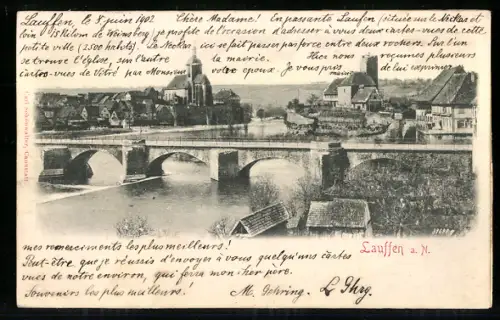 Lauffen, le 8 juin 1902. Chère Madame! En passante Laufen (située sur le Neckar et
loin 15 Kilom de Weinsberg) je profite de l'occasion d'adresser à vous deux cartes-vues de cette
petite ville (2500 habits). Le Neckar ici se fait passer par force entre deux rochers. Sur l'un
se trouve l'église, sur l'autre la mairie. Hier nous reçumes plusieurs
cartes-vues de Vitré par Monsieur votre epoux. Je vous prie de lui exprimer
mes remerciments les plus meilleurs!
Peut-être que je réussis d'envoyer à vous quelqu'uns cartes
vues de notre environ, qui fera mon cher père.
Souvenirs les plus meilleurs! M. Gehring.
Lauffen a. N.